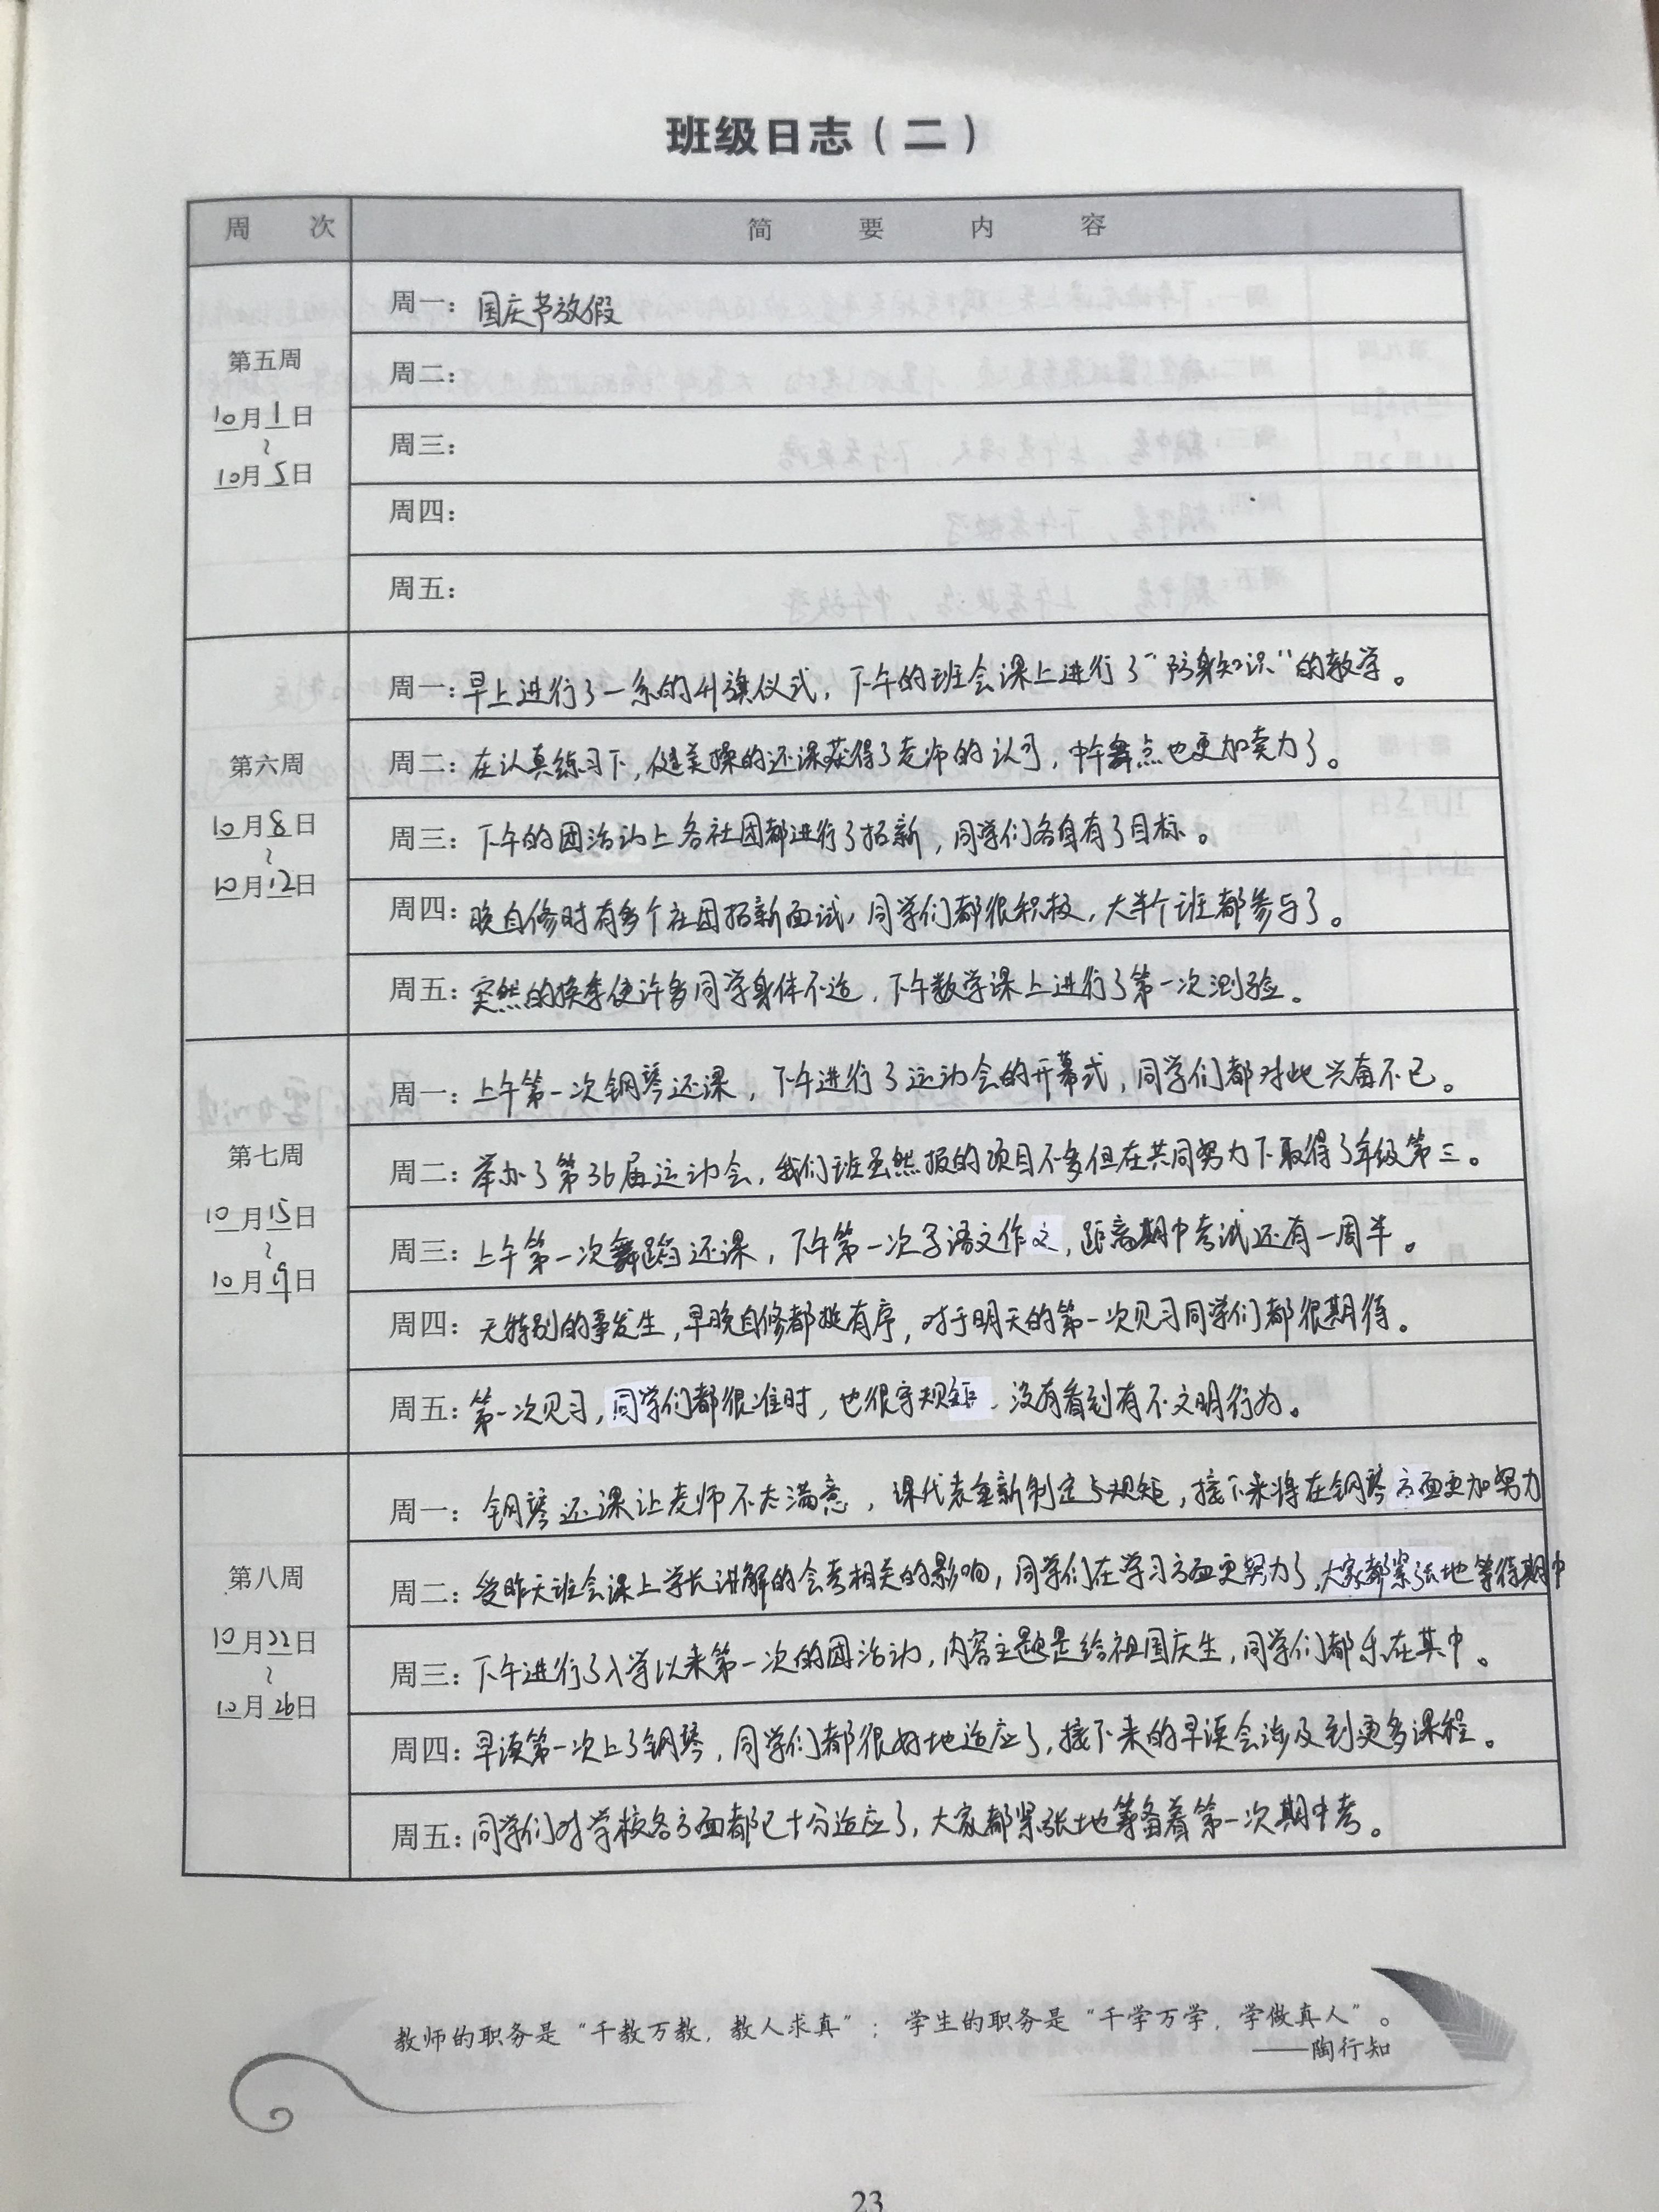 班级日志（二）
周 次 简 要 内 容
第五周
10月1日
~
10月5日
周一：国庆节放假
周二：
周三：
周四：
周五：
第六周
10月8日
~
10月12日
周一：早上进行了一系的升旗仪式，下午的班会课上进行了“防身知识”的教学。
周二：在认真练习下，健美操的还课获得了老师的认可，中午舞点也更加卖力了。
周三：下午的团活动上各社团都进行了招新，同学们各自有了目标。
周四：晚自修时有多个社团招新面试，同学们都很积极，大半个班都参与了。
周五：突然的换季使许多同学身体不适，下午数学课上进行了第一次测验。
第七周
10月15日
~
10月19日
周一：上午第一次钢琴还课，下午进行了运动会的开幕式，同学们都对此兴奋不已。
周二：举办了第36届运动会，我们班虽然报的项目不多但在共同努力下取得了年级第三。
周三：上午第一次舞蹈还课，下午第一次写语文作文，距离期中考试还有一周半。
周四：无特别的事发生，早晚自修都挺有序，对于明天的第一次见习同学们都很期待。
周五：第一次见习，同学们都很准时，也很守规矩，没有看到有不文明行为。
第八周
10月22日
~
10月26日
周一：钢琴还课让老师不太满意，课代表重新制定与规矩，接下来将在钢琴方面更加努力
周二：受昨天班会课上学长讲解的会考相关的影响，同学们在学习方面更努力了，大家都紧张地等待期中
周三：下午进行了入学以来第一次的团活动，内容主题是给祖国庆生，同学们都乐在其中。
周四：早读第一次上了钢琴，同学们都很好地适应了，接下来的早读会涉及到更多课程。
周五：同学们对学校各方面都已十分适应了，大家都紧张地筹备着第一次期中考。
教师的职务是“千教万教，教人求真”；学生的职务是“千学万学，学做真人”。
——陶行知
23